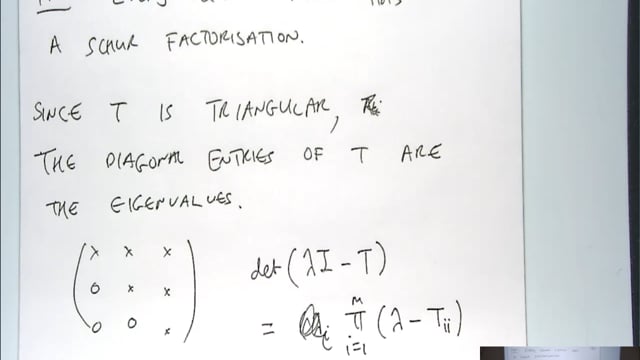 A SCHUR FACTORISATION.
SINCE T IS TRIANGULAR,
THE DIAGONAL ENTRIES OF T ARE
THE EIGENVALUES.
( x x x )
( 0 x x )
( 0 0 x )
det(λI - T)
= m π i=1 (λ - Tii)